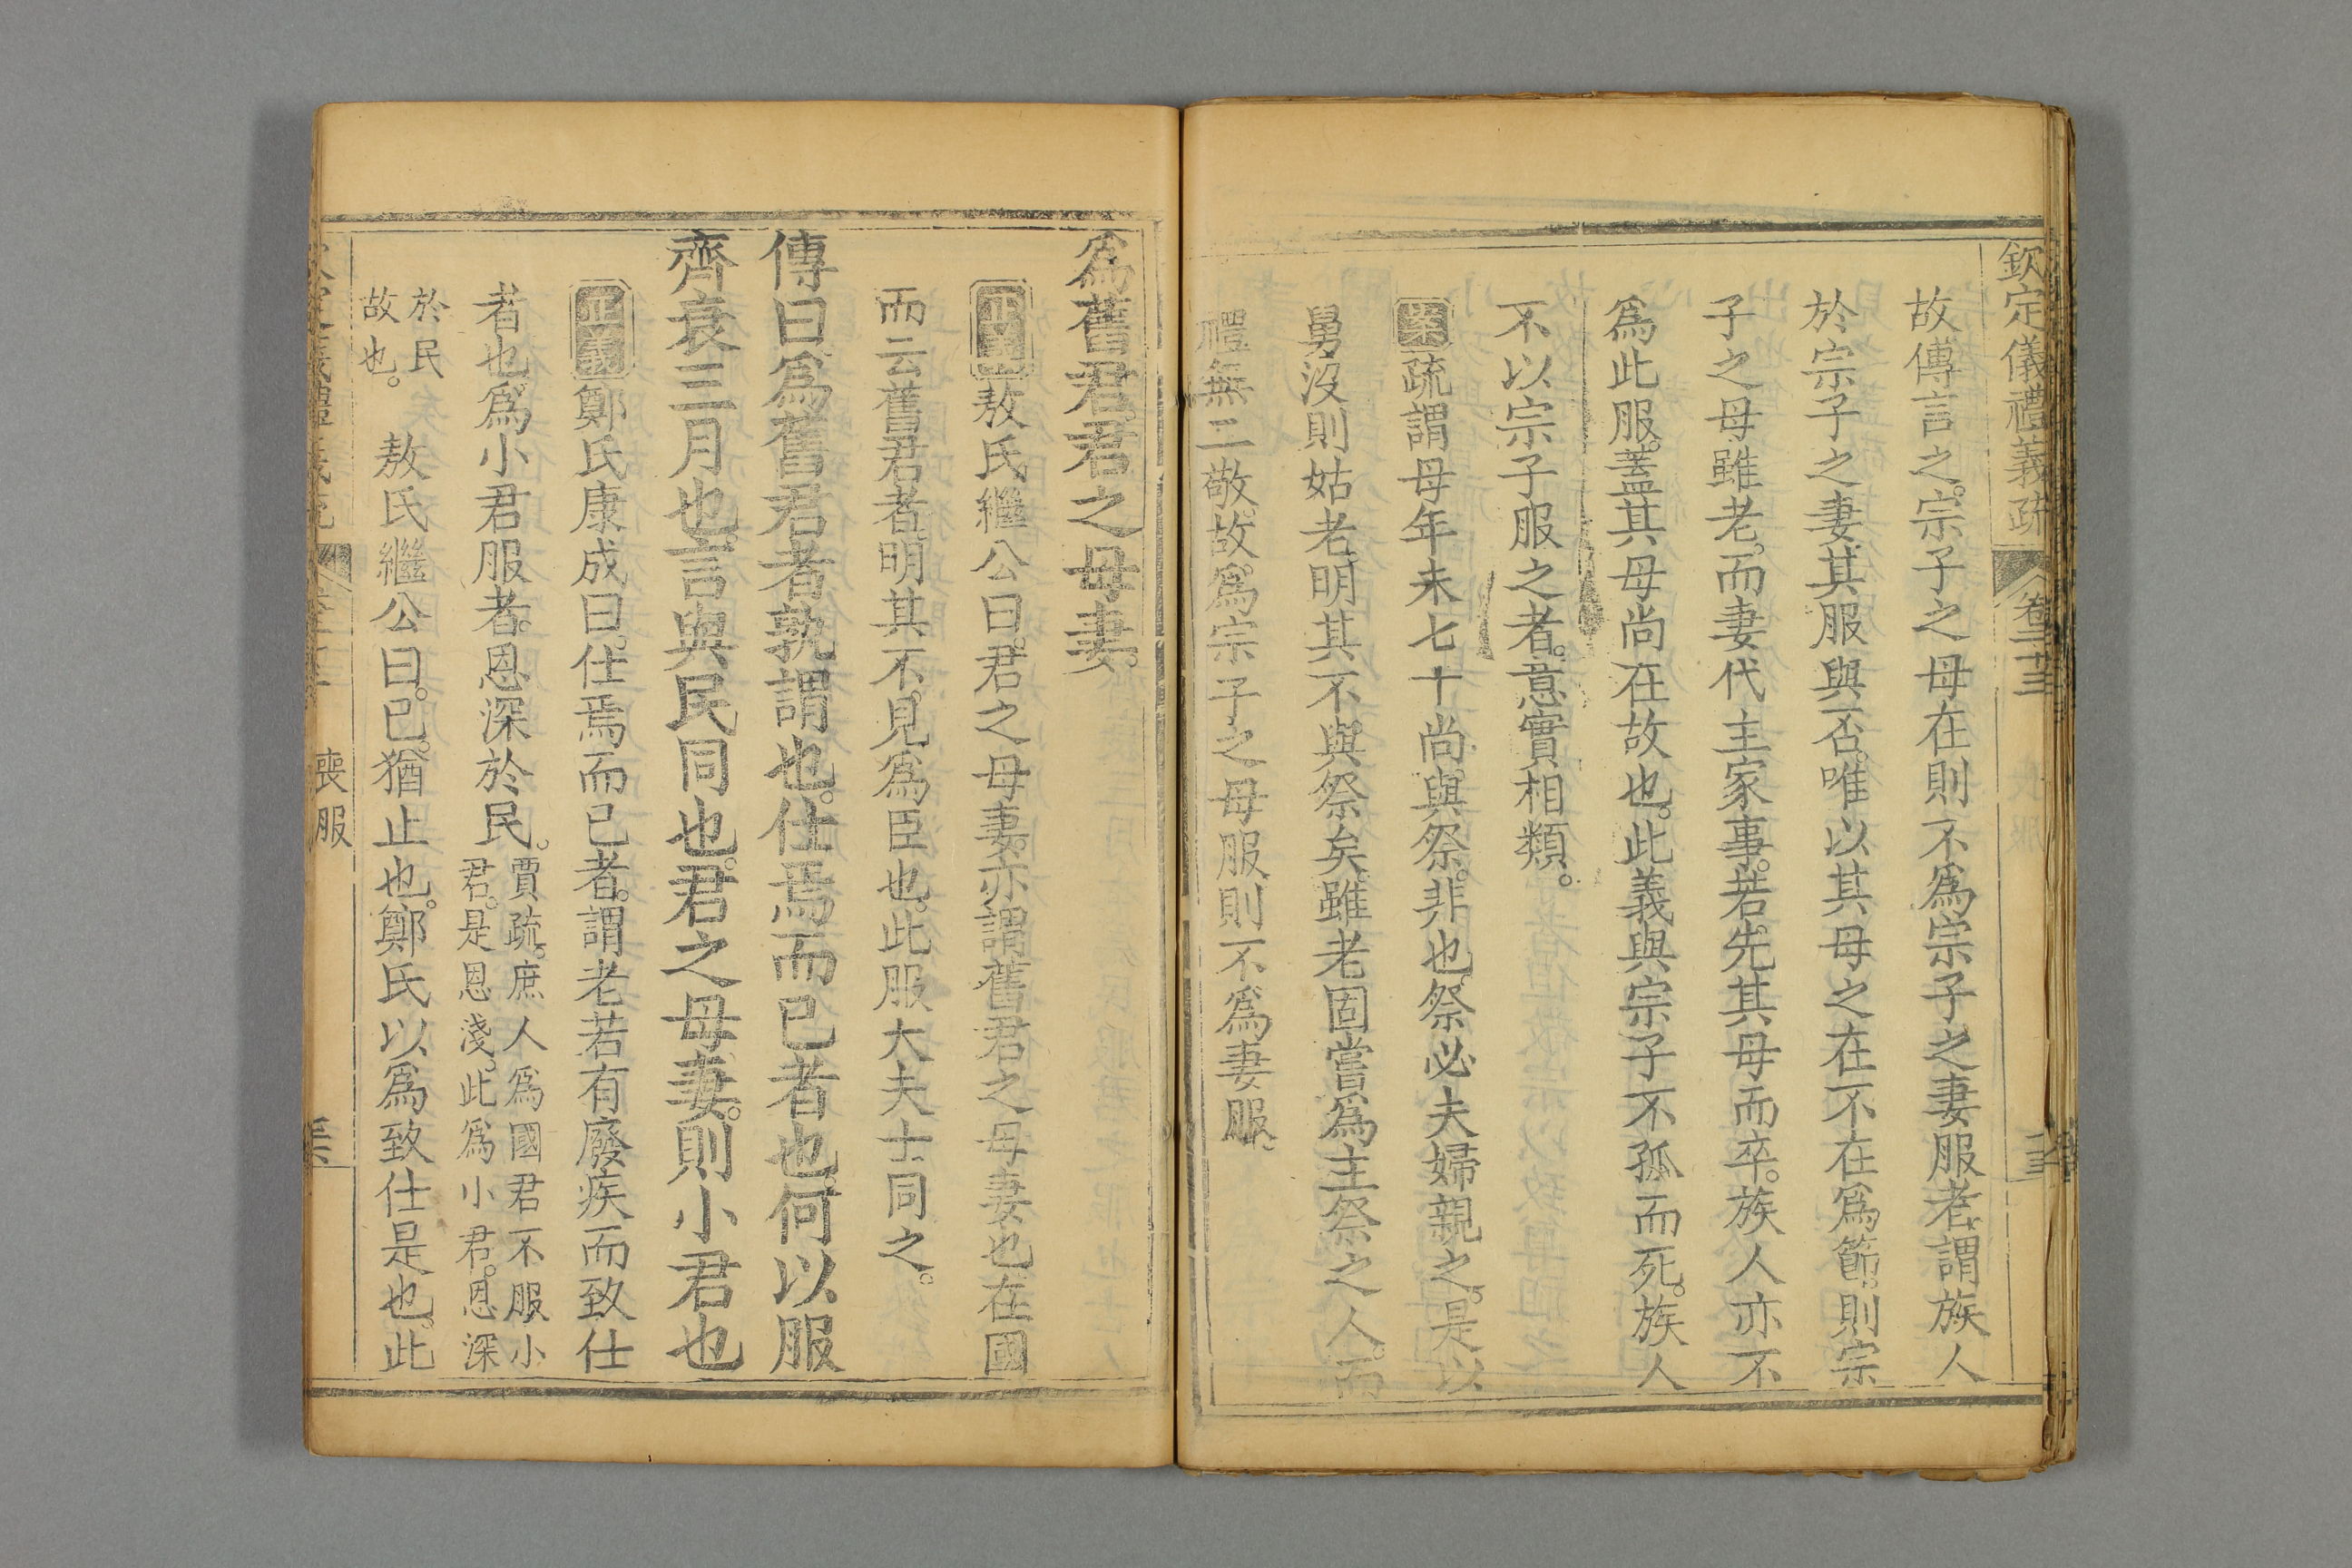 欽定儀禮義疏
故傳言之。宗子之母在則不爲宗子之妻服者。謂族人
於宗子之妻。其服與否。唯以其母之在不在爲節。則宗
子之母雖老。而妻代主家事。若先其母而卒。族人亦不
爲此服。蓋其母尚在故也。此義與宗子不孤而死。族人
不以宗子服之者。意實相類。
案疏謂母年未七十尚與祭。非也。祭必夫婦親之。是以
舅沒則姑老。明其不與祭矣。雖老固嘗爲主祭之人。而
禮無二敬。故爲宗子之母服則不爲妻服。
爲舊君。君之母妻。
正義敖氏繼公曰。君之母妻。亦謂舊君之母妻也。在國
而云舊君者。明其不見爲臣也。此服大夫士同之。
傳曰爲舊君者孰謂也。仕焉而已者也。何以服
齊衰三月也。言與民同也。君之母妻。則小君也
正義鄭氏康成曰。仕焉而已者。謂老若有廢疾而致仕
者也。爲小君服者。恩深於民。賈疏。庶人爲國君不服小
君。是恩淺。此爲小君。恩深
於民
故也。敖氏繼公曰。已。猶止也。鄭氏以爲致仕是也。此
喪服